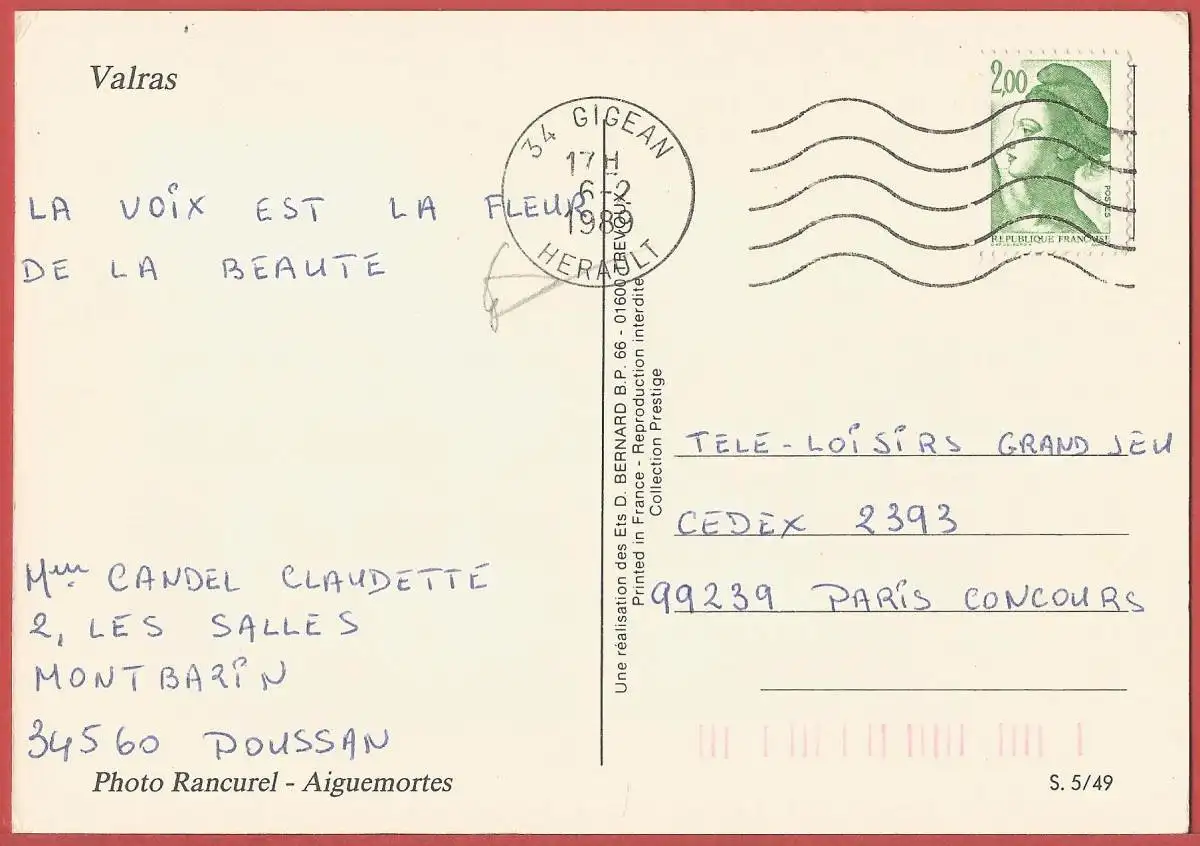 Valras
LA VOIX EST LA FLEUR
DE LA BEAUTE
Mme CANDEL CLAUDETTE
2, LES SALLES
MONTBAZIN
34560 POUSSAN
Photo Rancurel - Aiguemortes
34 GIGEAN
17 H
6-2
1989
HERAULT
Une réalisation des Ets D. BERNARD B.P. 66 - 01600 TREVOUX
Printed in France - Reproduction interdite
Collection Prestige
2,00
POSTES
REPUBLIQUE FRANCAISE
TELE-LOISIRS GRAND JEU
CEDEX 2393
99239 PARIS CONCOURS
S. 5/49